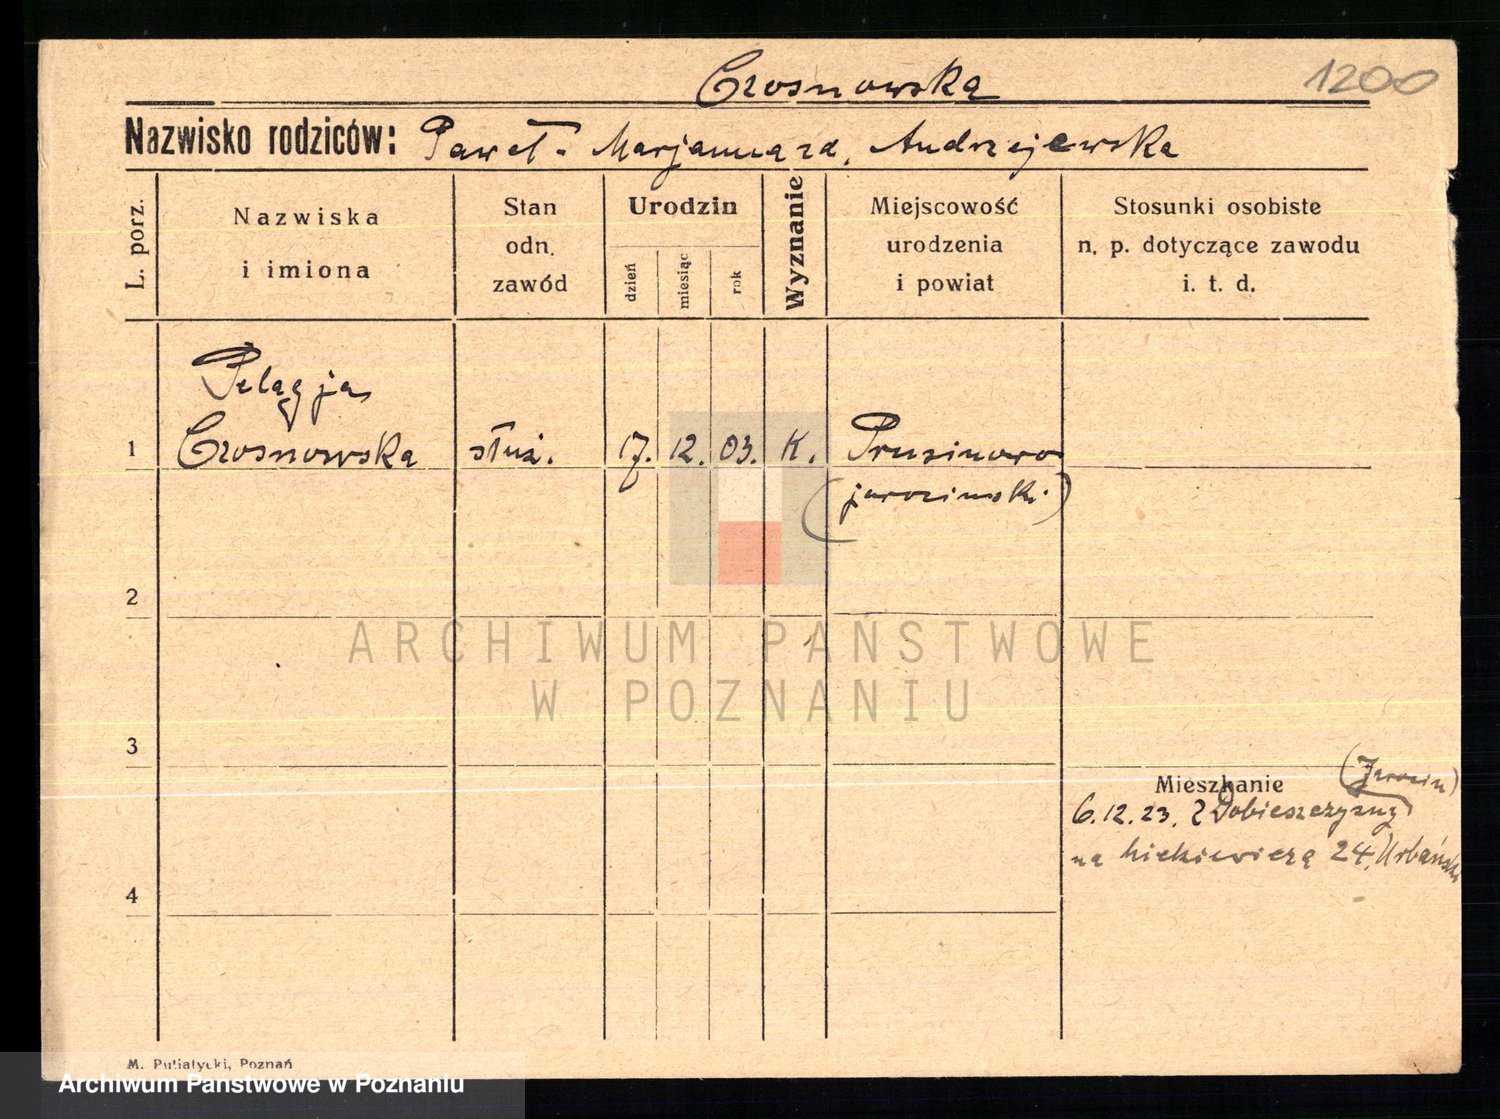 Czosnowska
1200
Nazwisko rodziców: Paweł - Marjanna zd. Andrzejewska
L. porz.
Nazwiska
i imiona
Stan
odn.
zawód
Urodzin
dzień
miesiąc
rok
Wyznanie
Miejscowość
urodzenia
i powiat
Stosunki osobiste
n. p. dotyczące zawodu
i. t. d.
Pelagja
1 Czosnowska służ. 17. 12. 03. K. Prusinowo
(jarocinski)
2
ARCHIWUM PAŃSTWOWE
W POZNANIU
3
Mieszkanie (Jarocin)
6.12.23. z Dobieszczyzny
na 24, Urbański
4
M. Putiatycki, Poznań
Archiwum Państwowe w Poznaniu